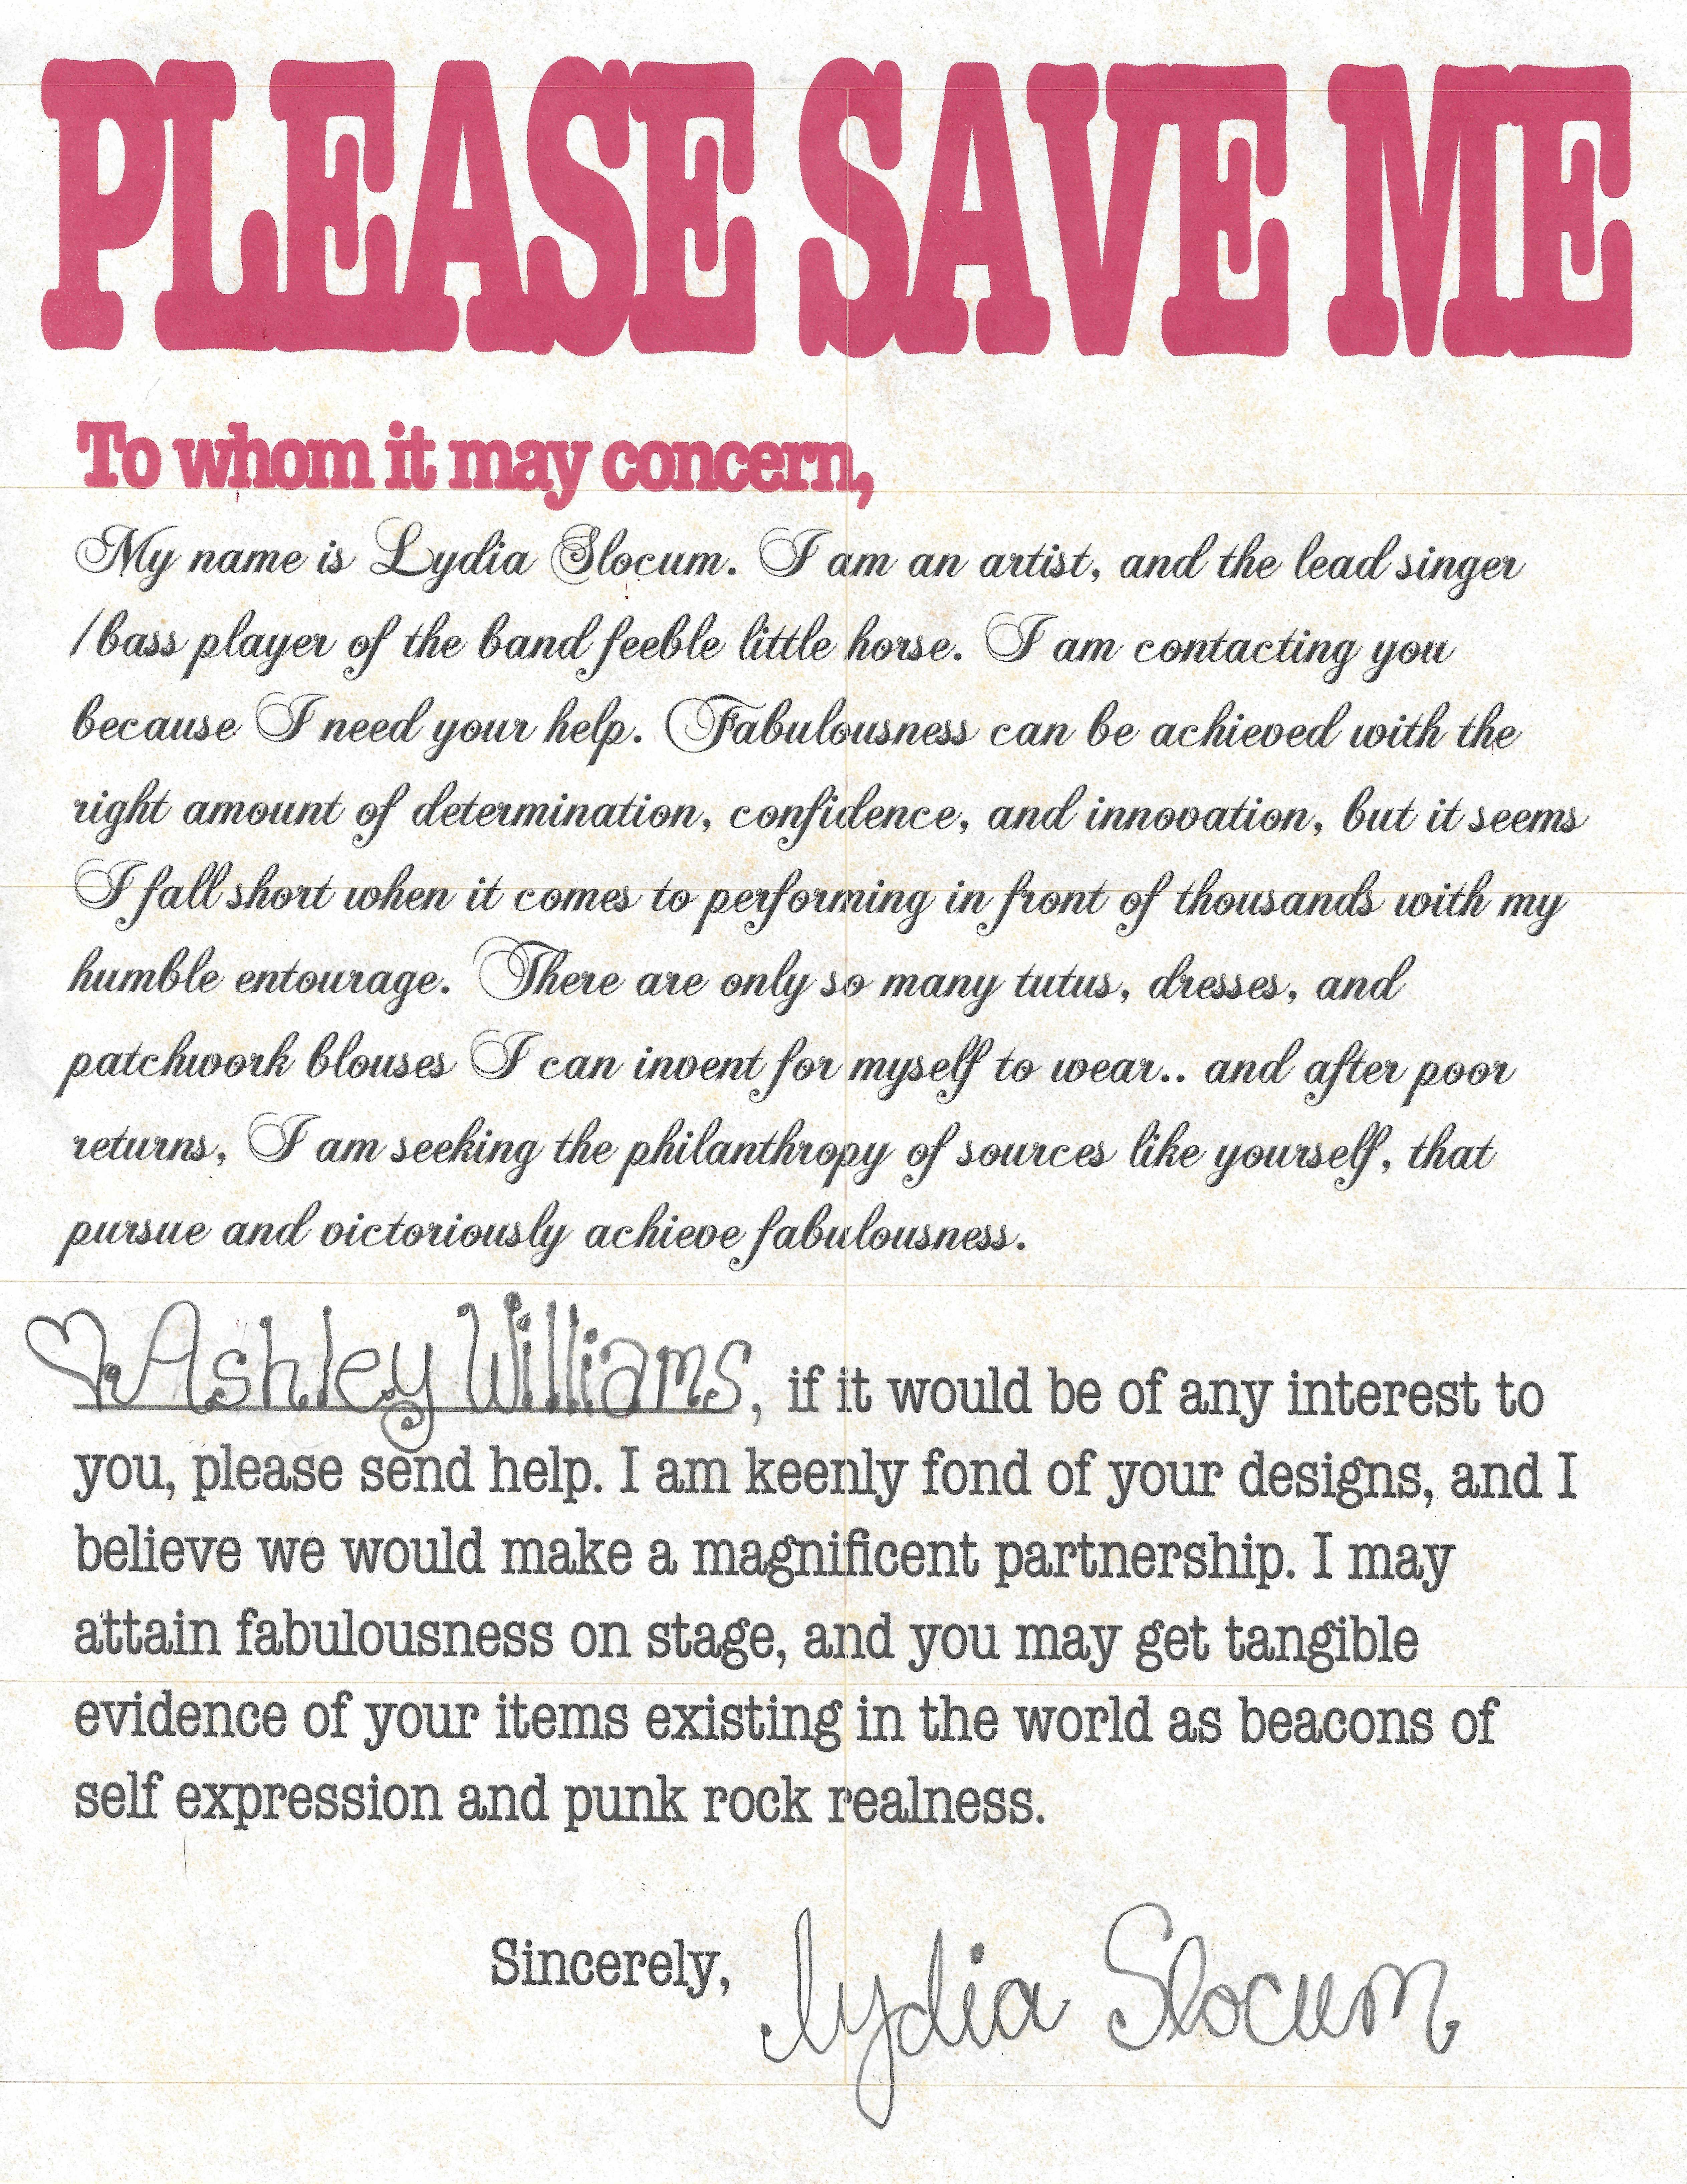 PLEASE SAVE ME
To whom it may concern,
My name is Lydia Slocum. I am an artist, and the lead singer
/bass player of the band feeble little horse. I am contacting you
because I need your help. Fabulousness can be achieved with the
right amount of determination, confidence, and innovation, but it seems
I fall short when it comes to performing in front of thousands with my
humble entourage. There are only so many tutus, dresses, and
patchwork blouses I can invent for myself to wear.. and after poor
returns, I am seeking the philanthropy of sources like yourself, that
pursue and victoriously achieve fabulousness.
♡Ashley Williams, if it would be of any interest to
you, please send help. I am keenly fond of your designs, and I
believe we would make a magnificent partnership. I may
attain fabulousness on stage, and you may get tangible
evidence of your items existing in the world as beacons of
self expression and punk rock realness.
Sincerely, lydia Slocum